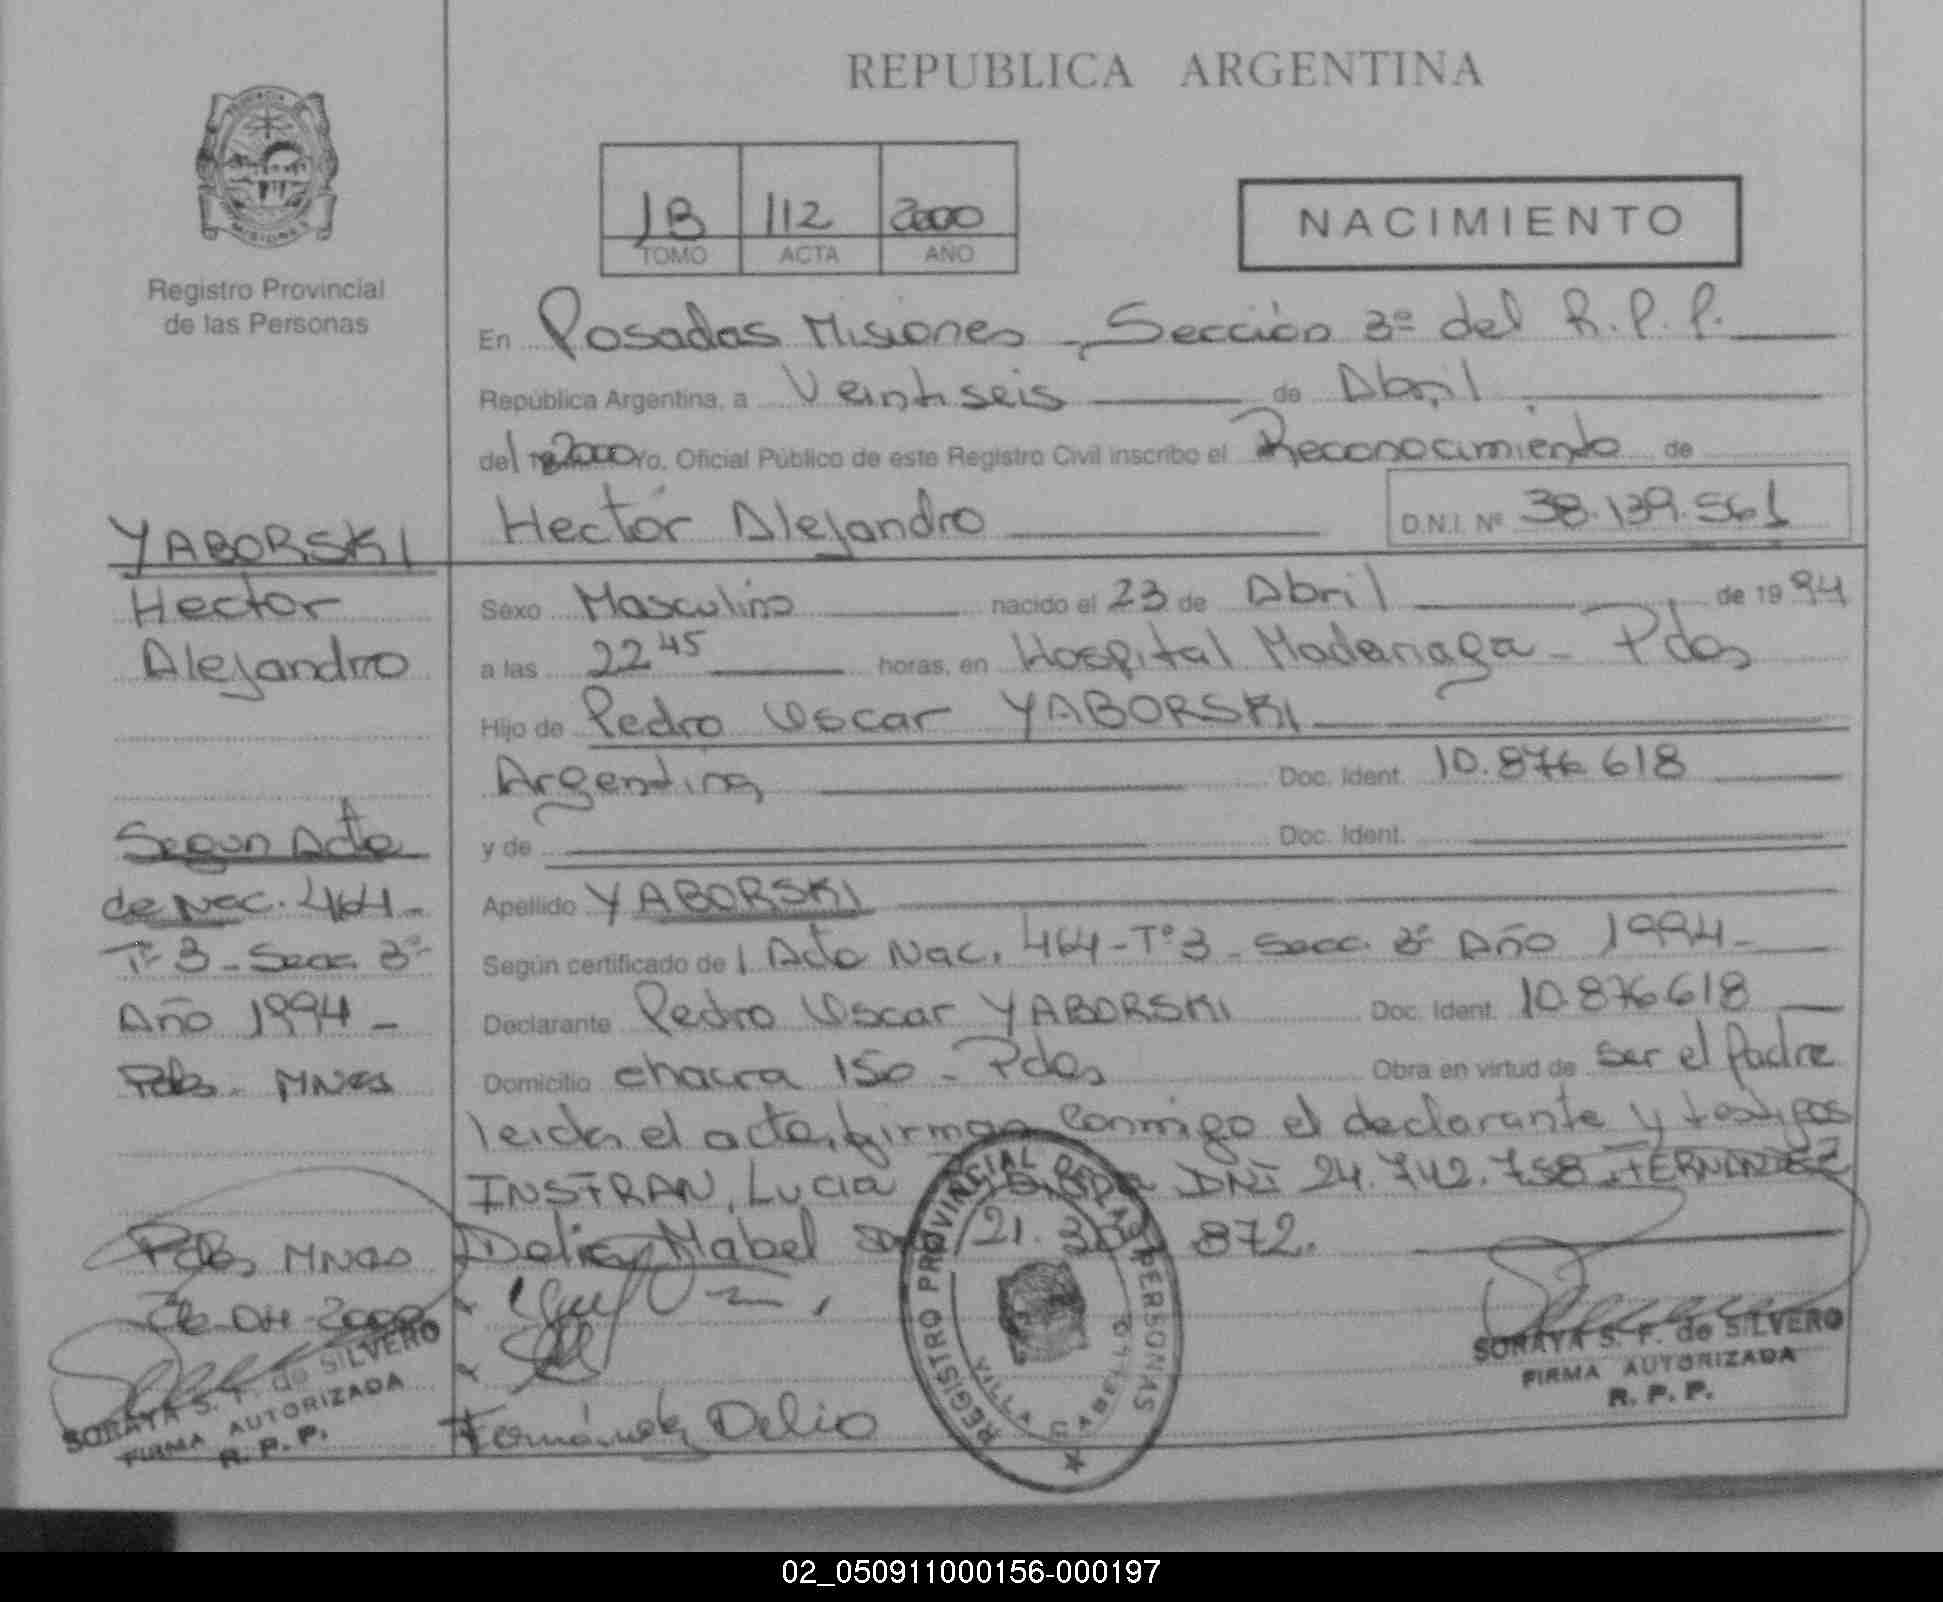 REPUBLICA ARGENTINA
1B 112 2000
TOMO ACTA AÑO
NACIMIENTO
Registro Provincial
de las Personas
En Posadas Misiones, Sección 3ª del R.P.P.
República Argentina, a Veintiseis de Abril
del 2000 Yo, Oficial Público de este Registro Civil inscribo el Reconocimiento de
Hector Alejandro D.N.I. Nº 38.139.561
YABORSKI
Hector
Alejandro
Sexo Masculino nacido el 23 de Abril de 1994
a las 22 45 horas, en Hospital Madariaga - Pdas
Hijo de Pedro Oscar YABORSKI
Argentina Doc. Ident. 10.876.618
y de Doc. Ident.
Apellido YABORSKI
Según certificado de Acta Nac. 464 - Tº 3 - Secc. 3ª Año 1994 -
Declarante Pedro Oscar YABORSKI Doc. Ident. 10.876.618
Domicilio chacra 150 - Pdas Obra en virtud de ser el padre
leida el acta, firman conmigo el declarante y testigos
INSFRAN, Lucia DNI 24.742.758 FERNANDEZ
Delia Mabel 21. 872.
Segun Acta
de Nac. 464 -
Tº 3 - Secc. 3ª
Año 1994 -
Pdas. MNES
Pdas MNES
26-04-2000
SORAYA S. F. de SILVERO
FIRMA AUTORIZADA
R. P. P.
Fernández Delia
REGISTRO PROVINCIAL DE LAS PERSONAS
VILLA CABELLO
SORAYA S. F. de SILVERO
FIRMA AUTORIZADA
R. P. P.
02_050911000156-000197